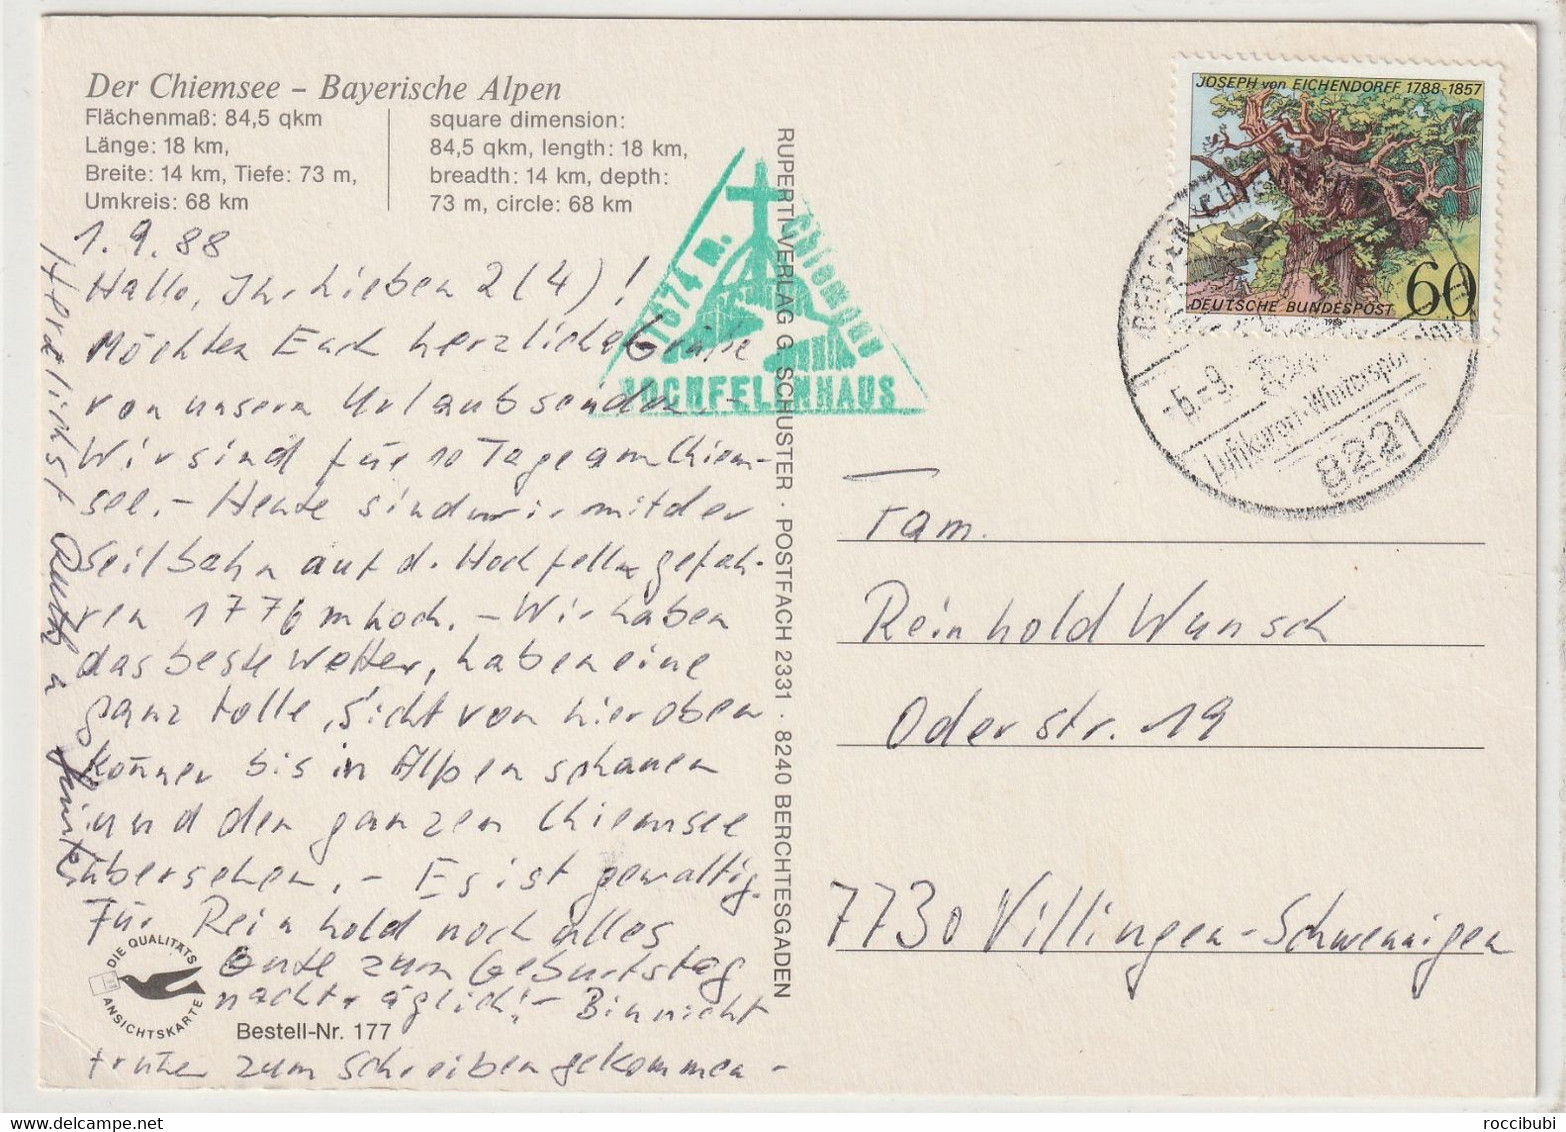 Der Chiemsee – Bayerische Alpen
Flächenmaß: 84,5 qkm
Länge: 18 km,
Breite: 14 km, Tiefe: 73 m,
Umkreis: 68 km
square dimension:
84,5 qkm, length: 18 km,
breadth: 14 km, depth:
73 m, circle: 68 km
1.9.88
Hallo, Ihr Lieben 2 (4)!
Möchten Euch herzliche Grüße
von unsern Urlaub senden. –
Wir sind für 10 Tage am Chiem-
see. – Heute sind wir mit der
Seilbahn auf d. Hochfelln gefah-
ren 1776 m hoch. – Wir haben
das beste Wetter, haben eine
ganz tolle, Sicht von hier oben
können bis in Alpen schauen
und den ganzen Chiemsee
übersehen. – Es ist gewaltig.
Für Reinhold noch alles
Gute zum Geburtstag
nachträglich! – Bin nicht
früher zum schreiben gekommen –
Herzlichst Ruth u
DIE QUALITÄTS
ANSICHTSKARTE
Bestell-Nr. 177
RUPERTI-VERLAG G. SCHUSTER · POSTFACH 2331 · 8240 BERCHTESGADEN
1674 m.
Chiemgau
HOCHFELLNHAUS
JOSEPH von EICHENDORFF 1788-1857
DEUTSCHE BUNDESPOST 60
BERGEN
-5.-9.
Luftkurort · Wintersport
8221
Fam.
Reinhold Wunsch
Oderstr. 19
7730 Villingen-Schwenningen
roccibubi